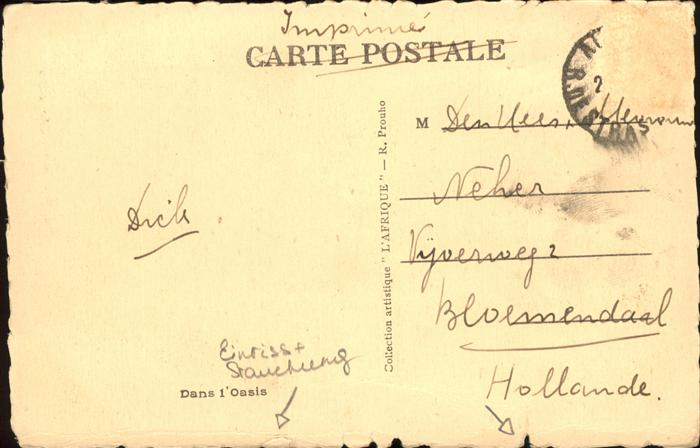 Imprimé
CARTE POSTALE
R. DE STRAS
2
M Den Heer
Neher
Vijverweg 2
Bloemendaal
Hollande.
Collection artistique "L'AFRIQUE" — R. Prouho
Dick
Einriss +
Stauchung
Dans l'Oasis